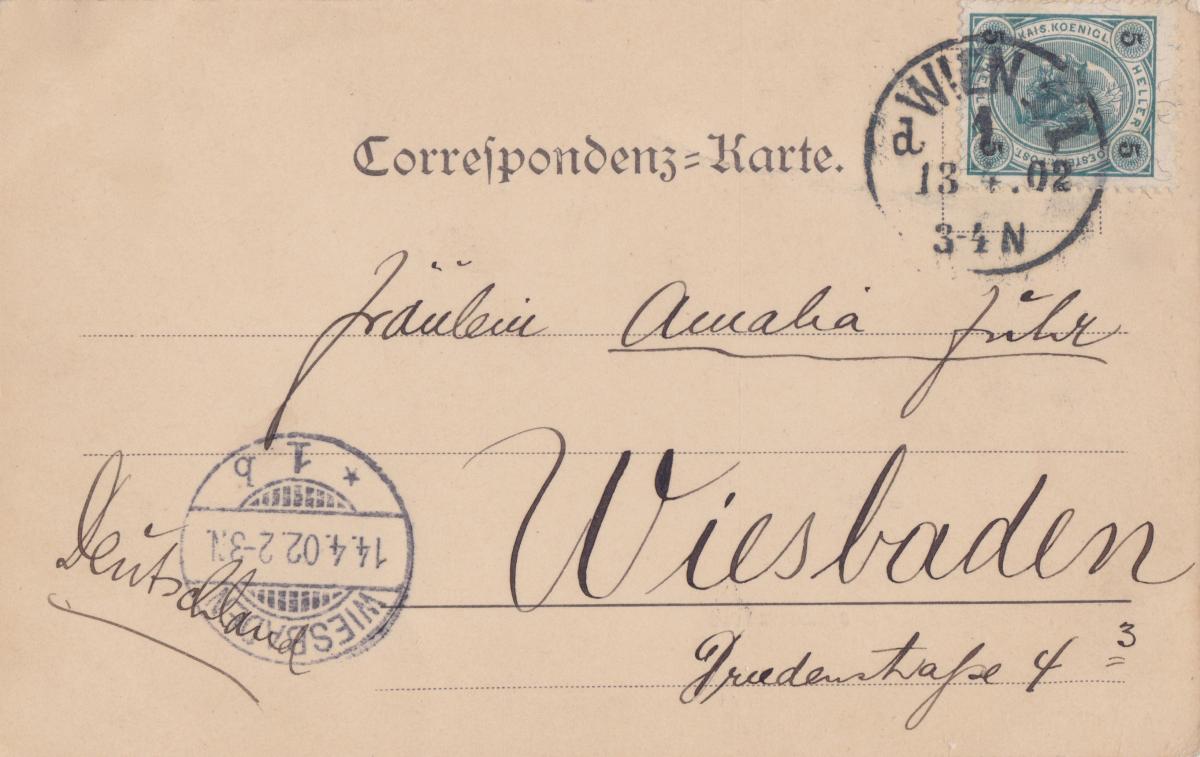 KAIS. KOENIGL.
5 5
HELLER
OESTERR. POST
5 5
WIEN 1/1
d 1
13 4.02
3-4 N
Correſpondenz=Karte.
Fräulein Amalia Führ
Wiesbaden
Deutschland
4 3
* 1 b
14.4.02.2-3N.
WIESBADEN